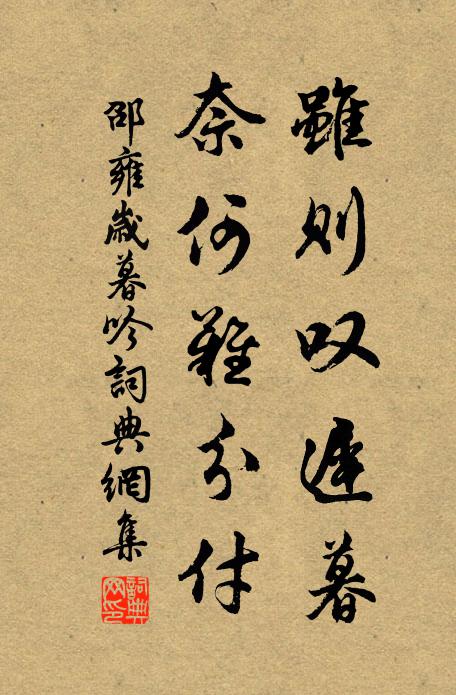 雖則叹遲暮
奈何難分付
邵雍歲暮吟詞典網集
詞典网印